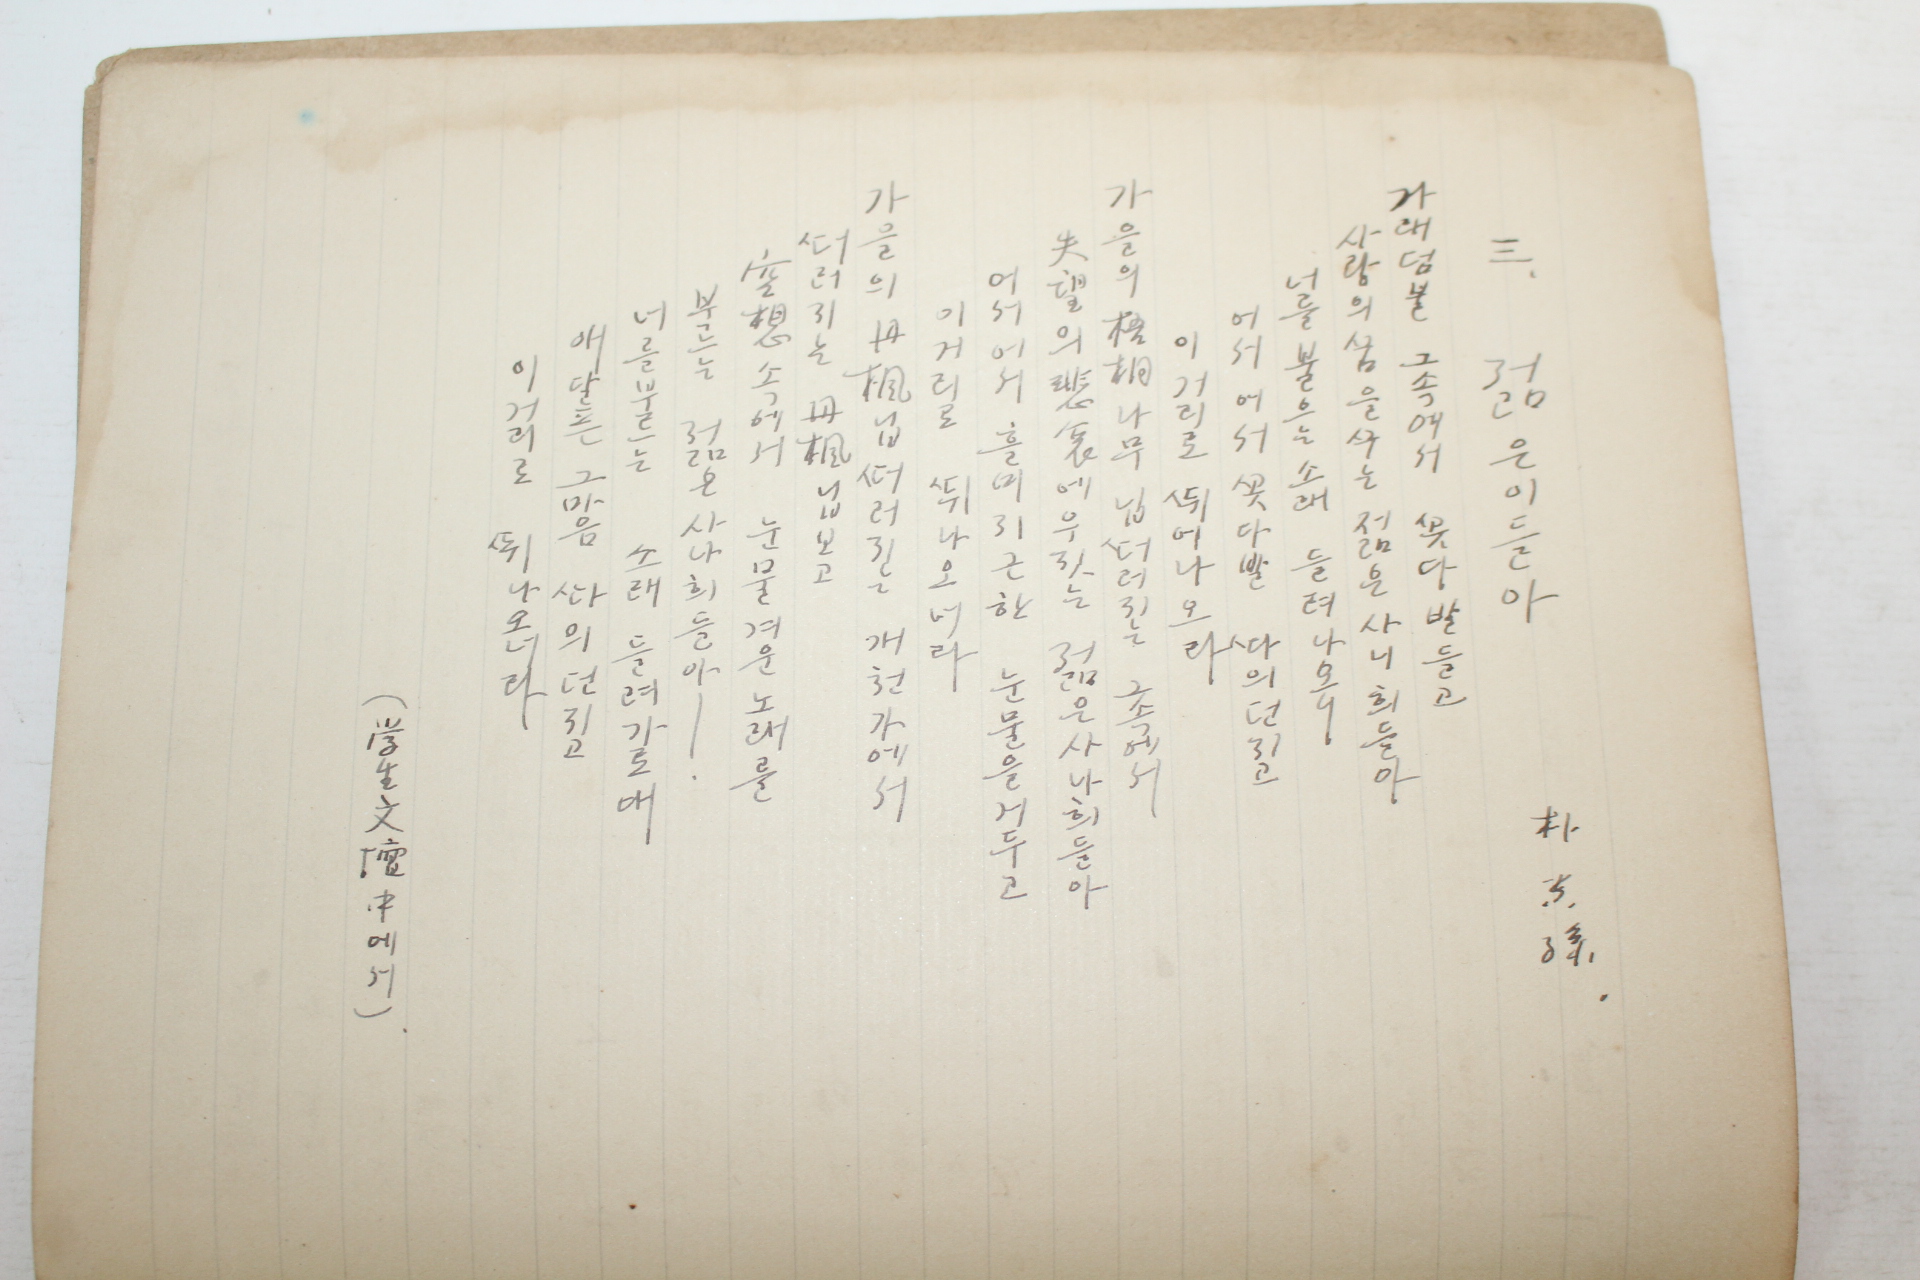 三. 젊은이들아
朴 芳 孫.
가래덤불 그속에서 꼿다발들고
사랑의 꿈을 꾸는 젊은 사나희들아
너를 불으는 소래 들려나오니
어서 어서 꼿다발 따의 던지고
이거리로 뛰여나오라
가을의 梧桐나무 닙 떠러지는 그속에서
失望의 悲哀에 우짓는 젊은 사나희들아
어서어서 흘미지근한 눈물을 거두고
이거리로 뛰나오너라
가을의 丹楓닙 떠러지는 개천가에서
떠러지는 丹楓닙보고
空想속에서 눈물겨운 노래를
부르는 젊은 사나희들아—.
너를 부르는 소래 들려가로대
애닯흔 그마음 따의 던지고
이거리로 뛰나오너라
(学生文壇中에서).